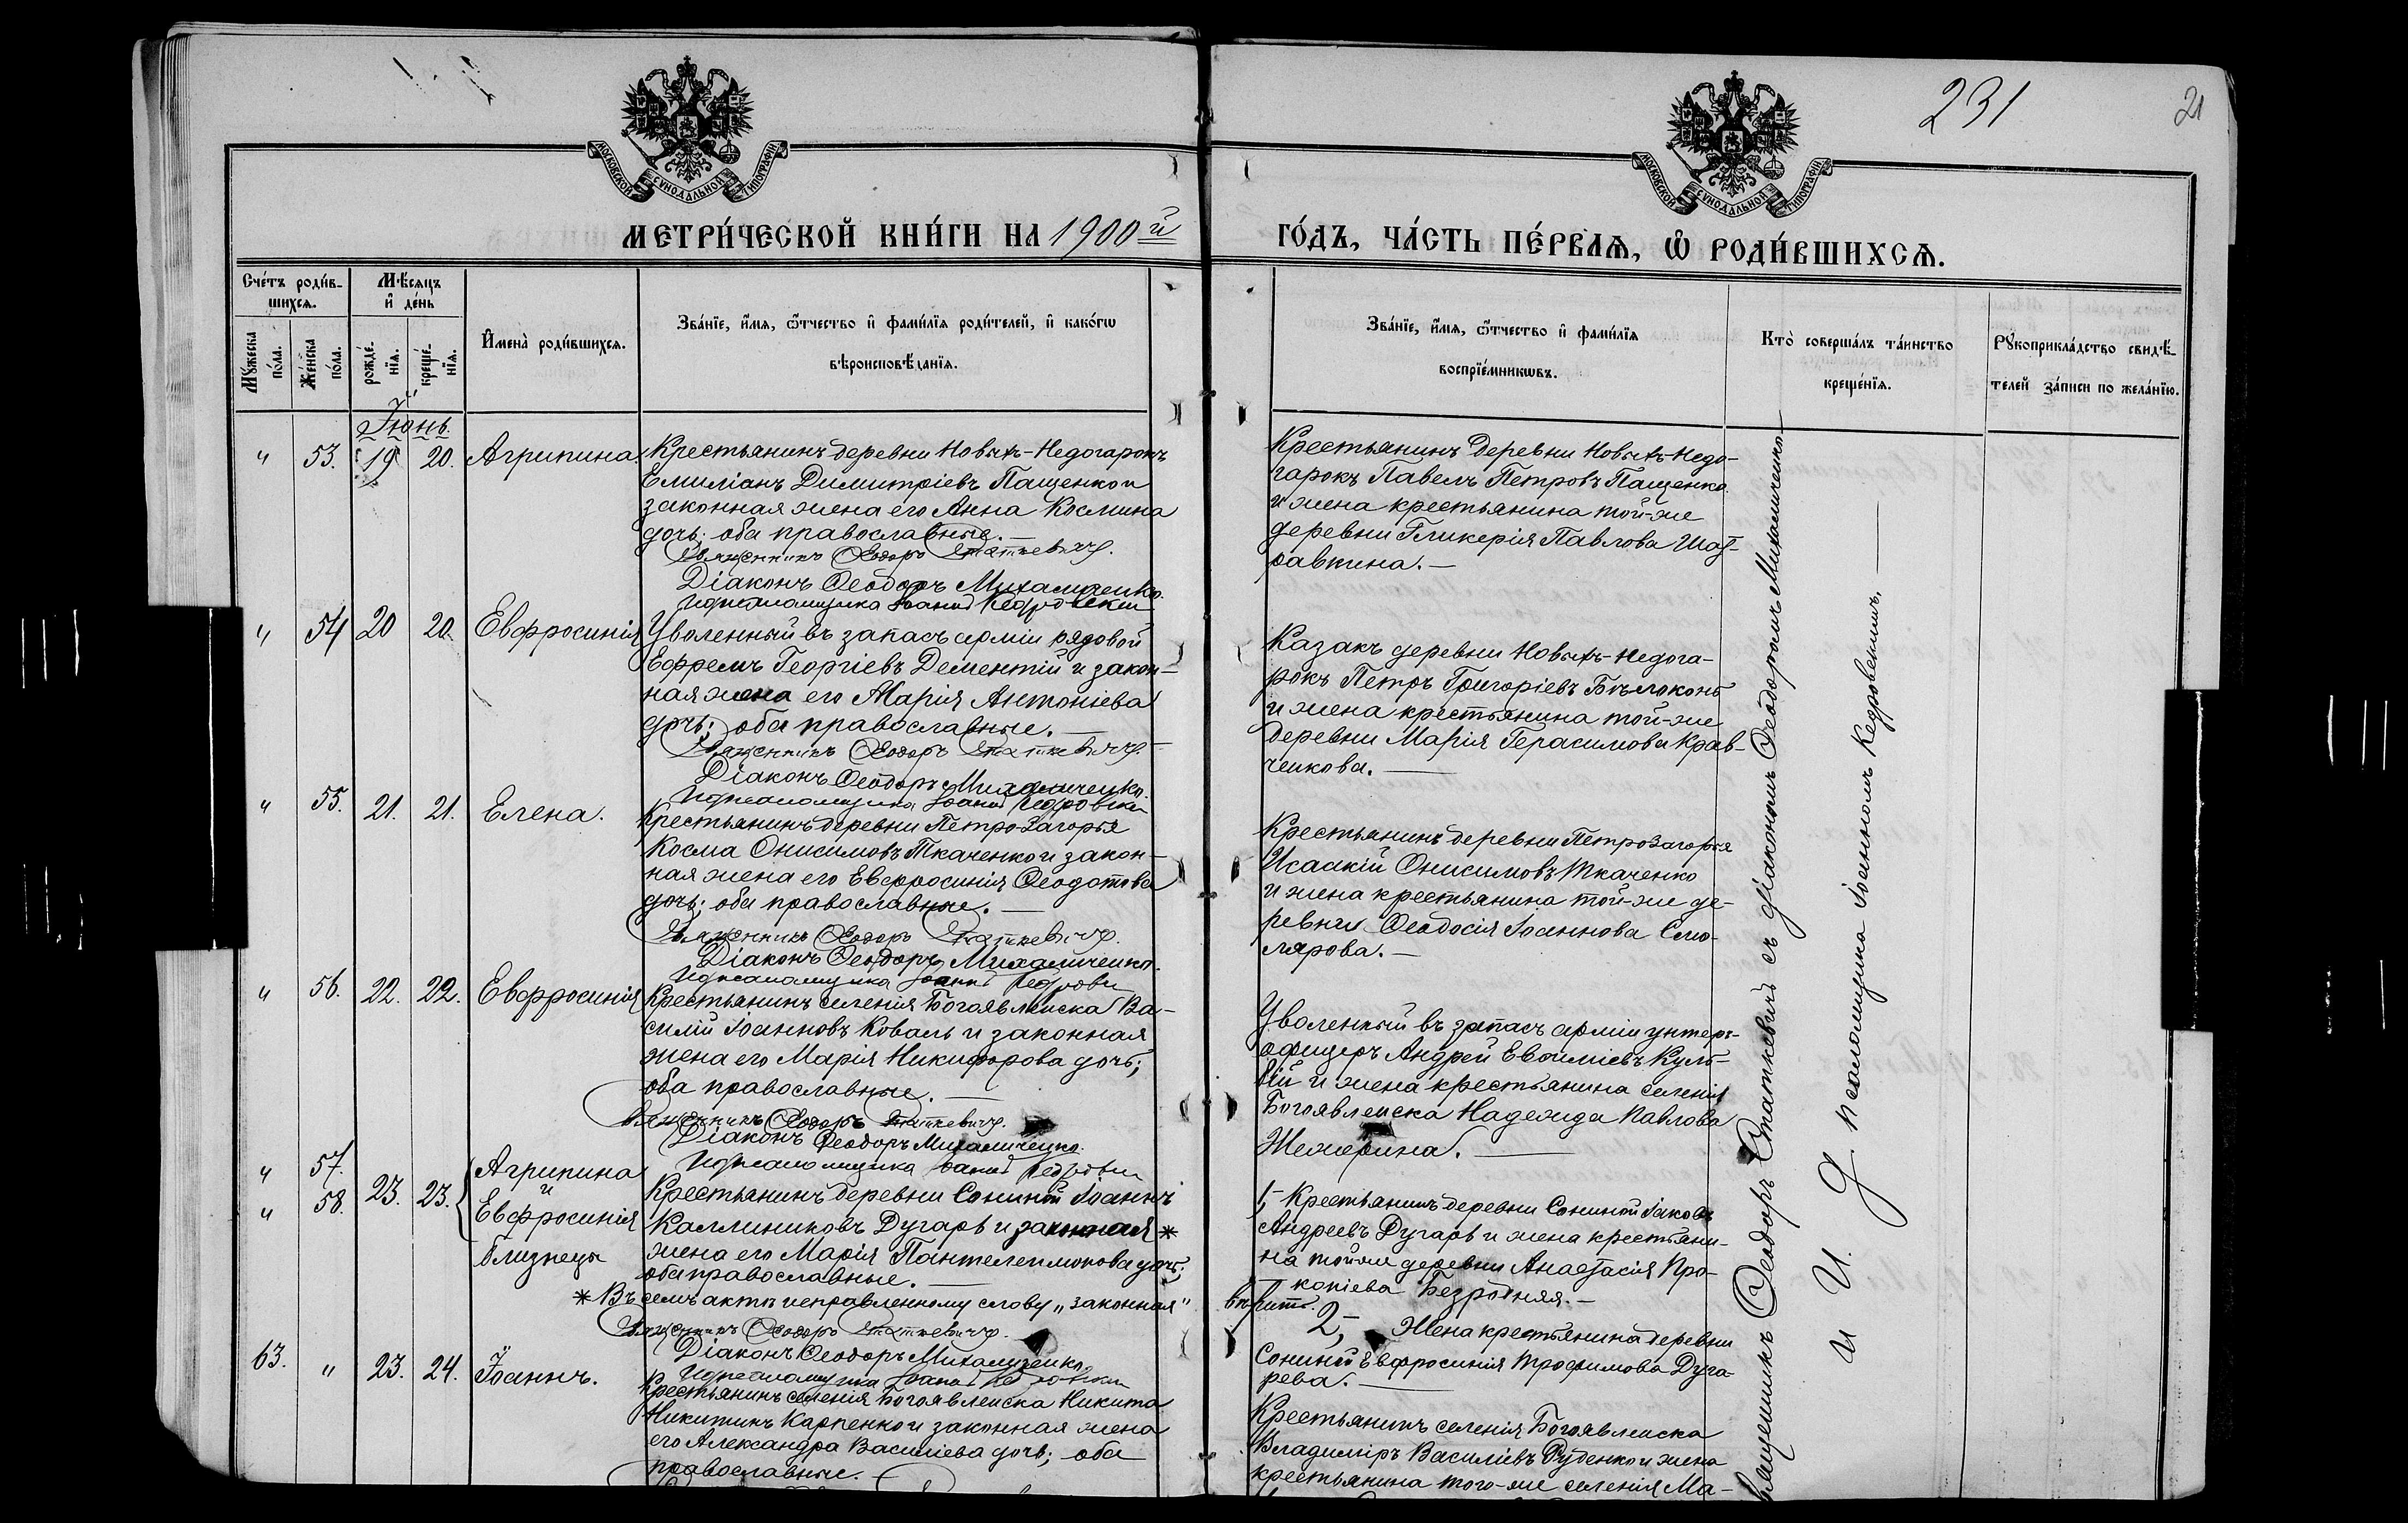 231
21
МОСКОВСКОЙ СѴНОДАЛЬНОЙ ТИПОГРАФІИ
МОСКОВСКОЙ СѴНОДАЛЬНОЙ ТИПОГРАФІИ
МЕТРИ́ЧЕСКОЙ КНИ́ГИ НА 1900й
ГО́ДЪ, ЧА́СТЬ ПЕ́РВАѦ, Ѿ РОДИ́ВШИХСѦ.
Сче́тъ роди́в-
шихсѧ.
Мꙋ́жеска
по́ла.
Же́нска
по́ла.
Мѣ́сѧцъ
и҆ де́нь
рожде́-
нїѧ.
креще́-
нїѧ.
И҆мена̀ роди́вшихсѧ.
Зва́нїе, и҆́мѧ, ѻ҆́тчество и҆ фами́лїѧ роди́телей, и҆ како́гѡ
вѣроисповѣ́данїѧ.
Зва́нїе, и҆́мѧ, ѻ҆́тчество и҆ фами́лїѧ
воспрїе́мникѡвъ.
Кто̀ соверша́лъ та́инство
креще́нїѧ.
Рꙋкоприкла́дство свидѣ́-
телей за́писи по жела́нїю.
Іюнь.
" 53. 19 20. Агрипина.
Крестьянинъ деревни Новыхъ-Недогарокъ
Емиліанъ Димитріевъ Пащенко и
законная жена его Анна Космина
дочь; оба православные.—
Священникъ Ѳеодоръ Статкевичъ.
Діаконъ Ѳеодоръ Михаличенко.
И д псаломщика Іоаннъ Кедровскій
Крестьянинъ деревни Новыхъ-Недо-
гарокъ Павелъ Петровъ Пащенко
и жена крестьянина той-же
деревни Гликерія Павлова Шат-
равкина.—
" 54 20 20. Евфросинія
Уволенный въ запасъ арміи рядовой
Ефремъ Георгіевъ Дементій и закон-
ная жена его Марія Антоніева
дочь; оба православные.—
Священникъ Ѳеодоръ Статкевичъ.
Діаконъ Ѳеодоръ Михаличенко.
И д псаломщика Іоаннъ Кедровскій
Казакъ деревни Новыхъ-Недога-
рокъ Петръ Григоріевъ Бѣлоконь
и жена крестьянина той-же
деревни Марія Герасимова Крав-
ченкова.—
" 55. 21. 21. Елена.
Крестьянинъ деревни Петро-Загорья
Косма Онисимовъ Ткаченко и закон-
ная жена его Евфросинія Ѳеодотова
дочь; оба православные.—
Священникъ Ѳеодоръ Статкевичъ.
Діаконъ Ѳеодоръ Михаличенко.
И д псаломщика Іоаннъ Кедровскій
Крестьянинъ деревни Петрозагорья
Исаакій Онисимовъ Ткаченко
и жена крестьянина той-же де-
ревни Ѳеодосія Іоаннова Смо-
лярова.—
" 56. 22. 22. Евфросинія
Крестьянинъ селенія Богоявленска Ва-
силій Іоанновъ Коваль и законная
жена его Марія Никифорова дочь;
оба православные.—
Священникъ Ѳеодоръ Статкевичъ.
Діаконъ Ѳеодоръ Михаличенко.
И д псаломщика Іоаннъ Кедровскій
Уволенный въ запасъ арміи унтеръ-
офицеръ Андрей Евѳиміевъ Куль-
вій и жена крестьянина селенія
Богоявленска Надежда Павлова
Жежерина.—
" 57.
" 58. 23. 23. Агрипина
и
Евфросинія
близнецы
Крестьянинъ деревни Сониной Іоаннъ
Каллиниковъ Дугарь и законная *
жена его Марія Пантелеимонова дочь;
оба православные.—
* Въ семъ актѣ исправленному слову „законная"
вѣрить.
Священникъ Ѳеодоръ Статкевичъ.
Діаконъ Ѳеодоръ Михаличенко.
И д псаломщика Іоаннъ Кедровскій
1, Крестьянинъ деревни Сониной Іаковъ
Андреевъ Дугарь и жена крестьяни-
на той же деревни Анастасія Про-
копіева Безродняя.—
2, Жена крестьянина деревни
Сониной Евфросинія Трофимова Дуга-
рева.—
63. " 23. 24. Іоаннъ.
Крестьянинъ селенія Богоявленска Никита
Никитинъ Карпенко и законная жена
его Александра Василіева дочь; оба
православные.—
Крестьянинъ селенія Богоявленска
Владиміръ Василіевъ Руденко и жена
крестьянина того-же селенія Ма-
Священникъ Ѳеодоръ Статкевичъ съ діакономъ Ѳеодоромъ Михаличенко—
и И. д. псаломщика Іоанномъ Кедровскимъ.—